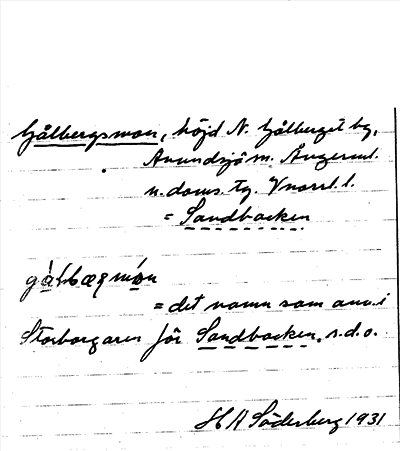 Gålbergsmon, höjd N. Gålberget by,
Anundsjö sn. Ångerml.
n. doms. tg. Vnorrl. l.
= Sandbacken
= det namn som anv. i
Storborgaren för Sandbacken, s.d.o.
H A Söderberg 1931